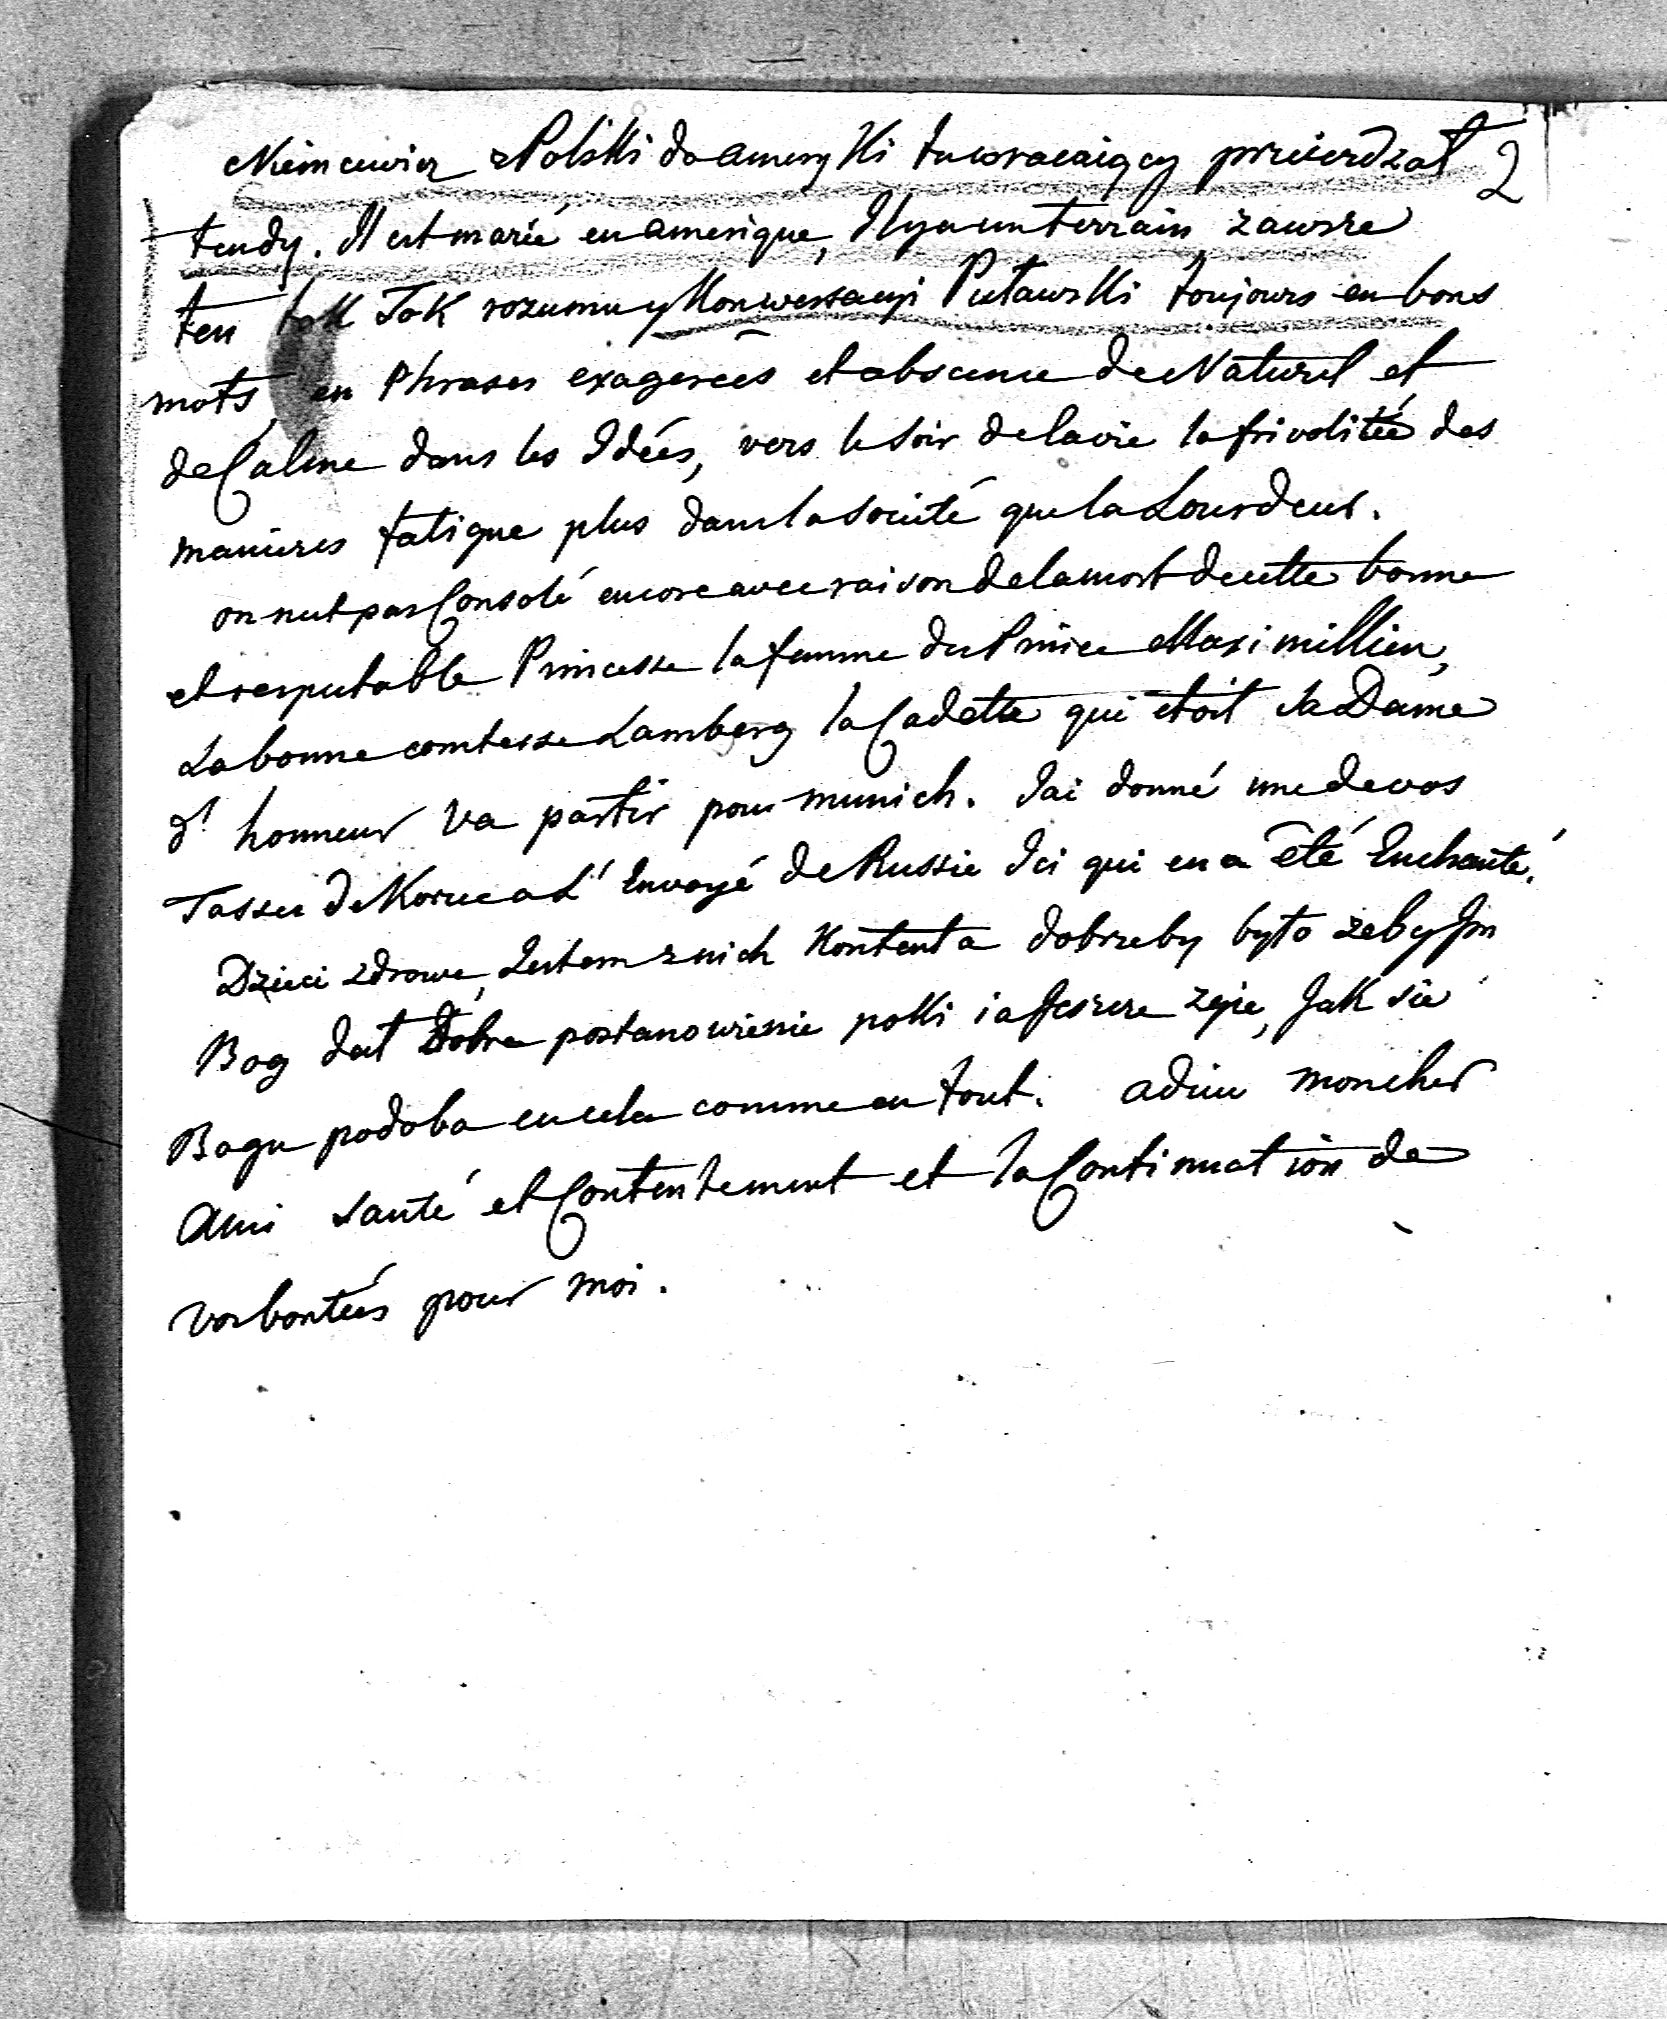 Niemcewicz z Polski do ameryki tu wracaiący przeierdzał 2
tendy. Il est marié en amerique, Il y a un terrain, zawsze
ten tok Tok rozumu y Konwersacyi Puławski toujours en bons
mots, en Phrases exagerées et absence de Naturel et
de Calme dans les Idées, vers le soir de la vie la frivolitée des
manieres fatigue plus dans la societé que la Lourdeur.
on n'est pas Consolé encore avec raison de la mort de cette bonne
et respectable Princesse la femme du Prince Maximillien,
La bonne comtesse Lamberg la Cadette qui étoit sa Dame
d'honneur va partir pour munich. J'ai donné une de vos
Tasses de Korzec a L'Envoyé de Russie Ici qui en a été Enchanté.
Dzieci zdrowe, Jestem z nich Kontenta dobrze by było zeby Im
Bog dał Dobre postanowienie poki ia Jeszcze zyie, Jak sie
Bogu podoba en cela comme en tout. adieu mon cher
Ami santé et Contentement et la Continuation de
vos bontées pour moi.